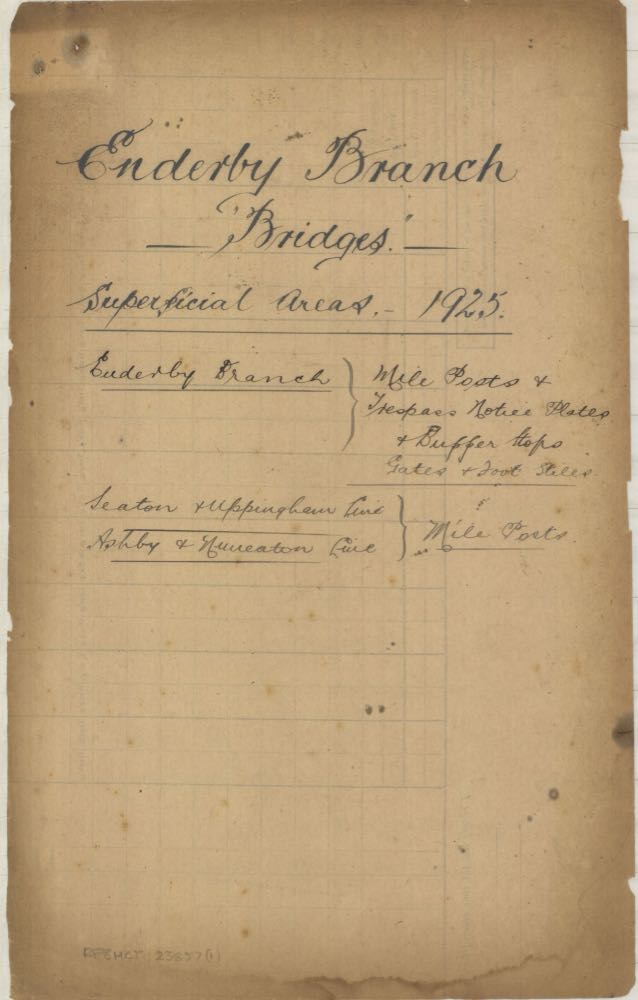 Enderby Branch
"Bridges."
Superficial Areas. - 1925.
Enderby Branch } Mile Posts &
Trespass Notice Plates
& Buffer Stops
Gates & Foot Stiles.
Seaton & Uppingham Line
Ashby & Nuneaton Line } Mile Posts.
23857(1)